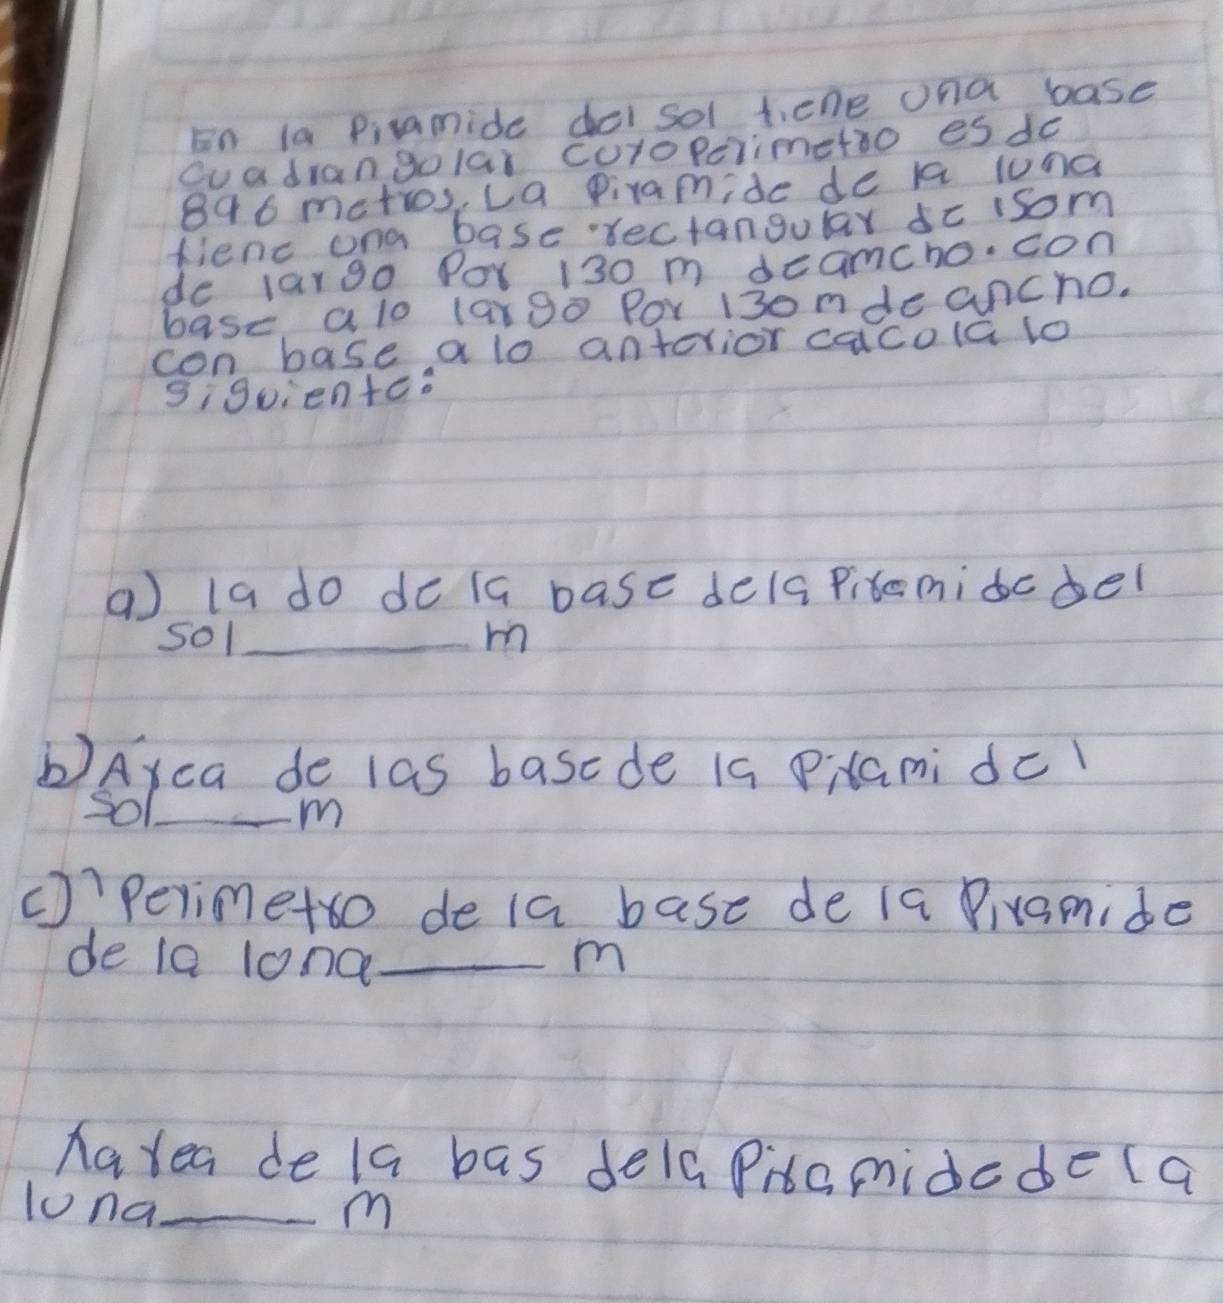 En la Piramide del sol tiene una base
cuadrangolar cuyo perimetro es de
896 metros. La Piramide de la luna
tiene una base rectangular de 150m
de largo Por 130 m deamcho. con
base a lo largo Por 130 m de ancho.
con base a lo anterior calcola lo
siguiente:
a) lado de la base dela Piramide del
sol ___ m
b) Área de las base de la Piramidel
sol ___ m
c) Perimetro de la base de la Piramide
de la lona ___ m
Aarea de la bas dela Piramide de la
luna ___ m